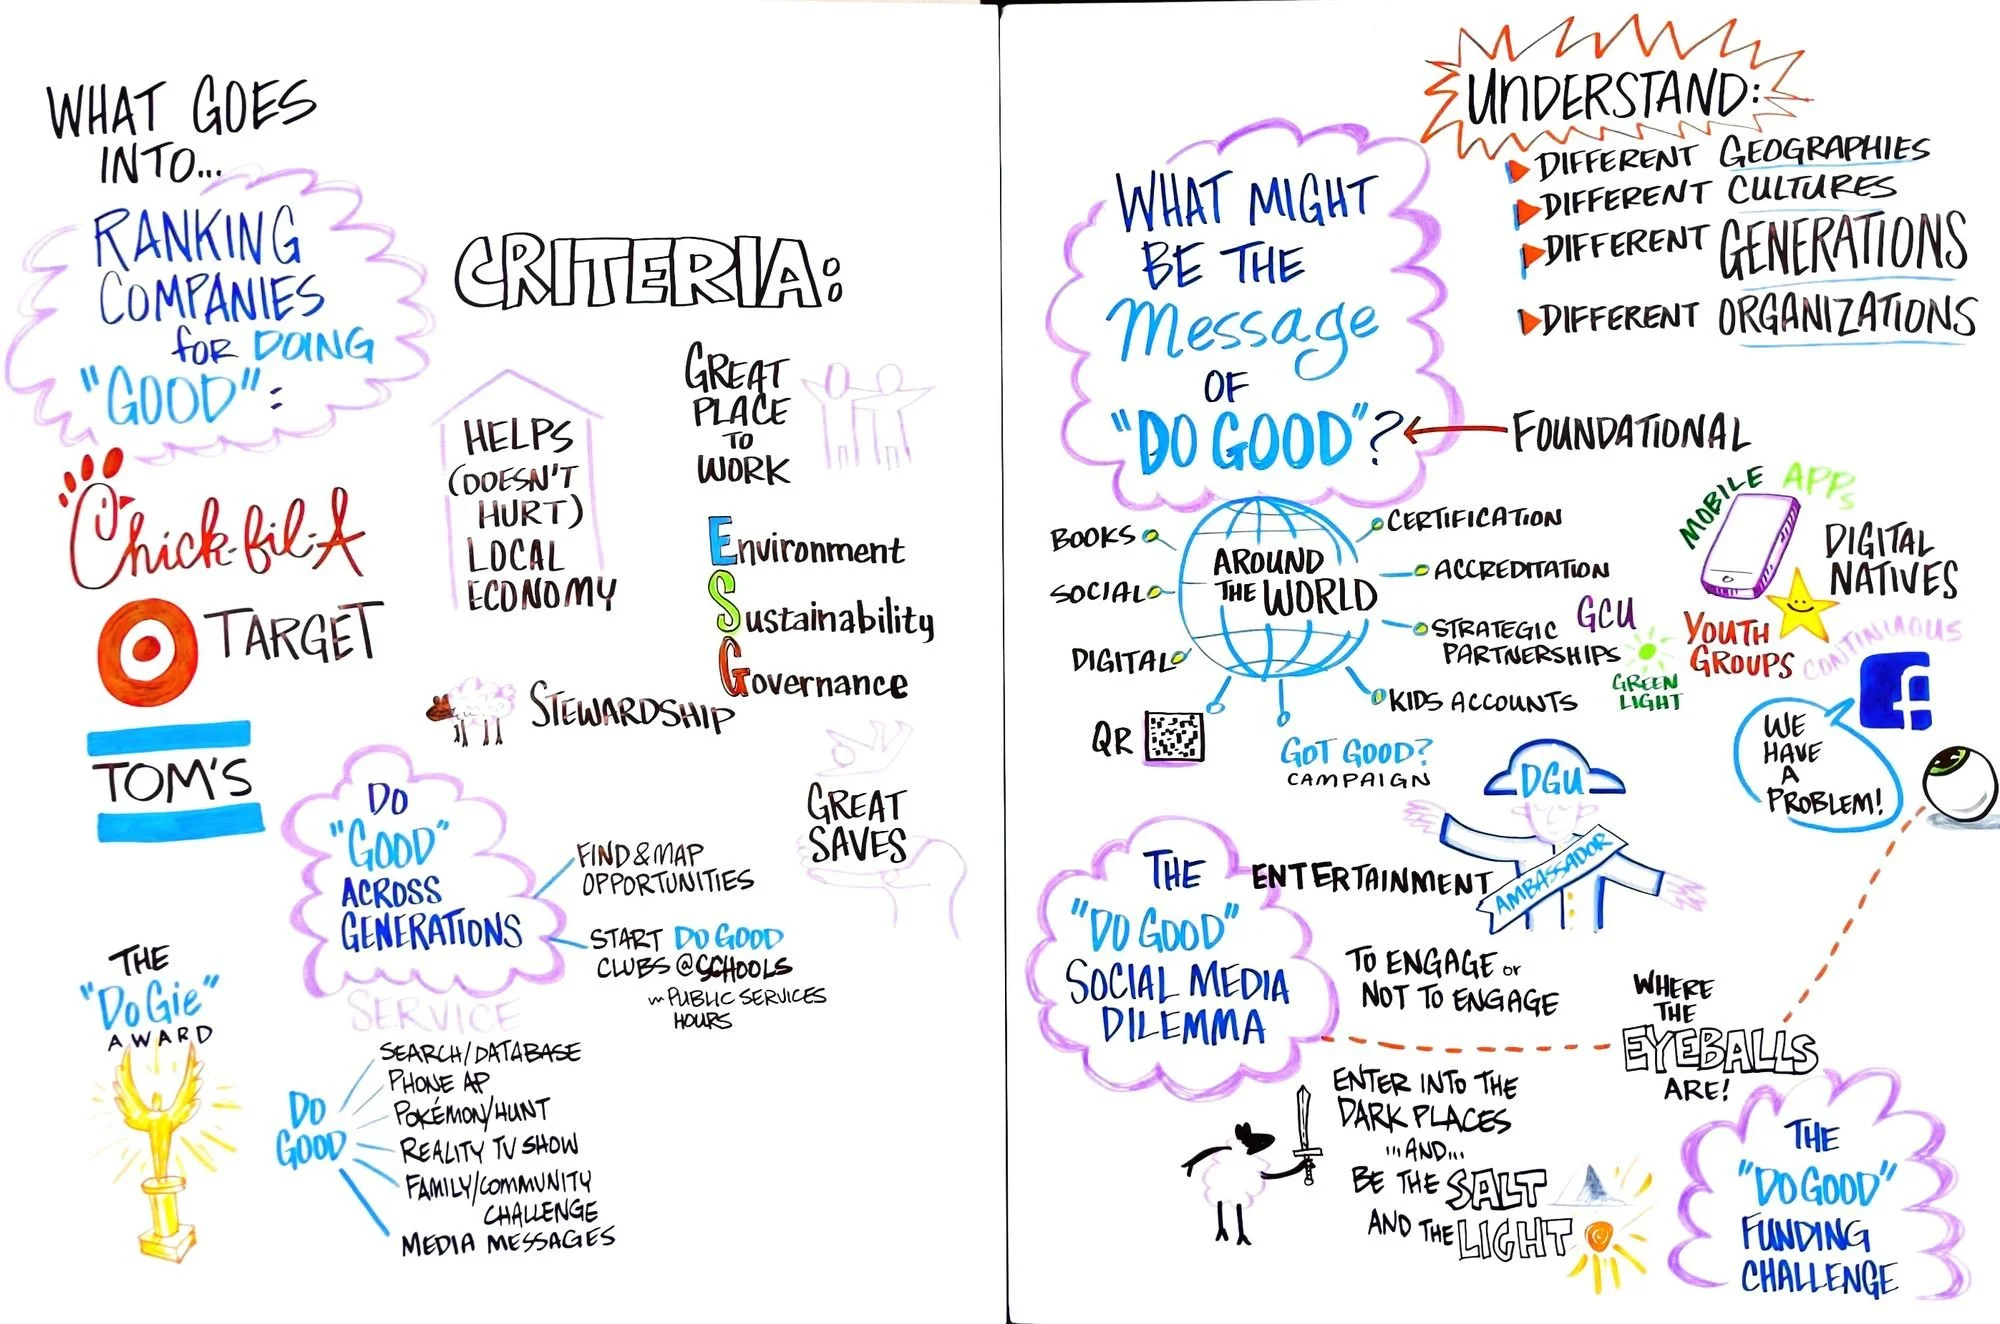 WHAT GOES
INTO...
RANKING
COMPANIES
for DOING
"GOOD":
Chick-fil-A
TARGET
TOM'S
CRITERIA:
HELPS
(DOESN'T
HURT)
LOCAL
ECONOMY
GREAT
PLACE
TO
WORK
Environment
Sustainability
Governance
STEWARDSHIP
GREAT
SAVES
DO
"GOOD"
ACROSS
GENERATIONS
FIND & MAP
OPPORTUNITIES
START DO GOOD
CLUBS @ SCHOOLS
w PUBLIC SERVICES
HOURS
SERVICE
THE
"DoGie"
AWARD
DO
GOOD
SEARCH/DATABASE
PHONE AP
POKÉMON/HUNT
REALITY TV SHOW
FAMILY/COMMUNITY
CHALLENGE
MEDIA MESSAGES
UNDERSTAND:
DIFFERENT GEOGRAPHIES
DIFFERENT CULTURES
DIFFERENT GENERATIONS
DIFFERENT ORGANIZATIONS
WHAT MIGHT
BE THE
Message
OF
"DO GOOD"?
FOUNDATIONAL
AROUND
THE WORLD
BOOKS
SOCIAL
DIGITAL
QR
GOT GOOD?
CAMPAIGN
CERTIFICATION
ACCREDITATION
STRATEGIC
PARTNERSHIPS
KIDS ACCOUNTS
GCU
GREEN
LIGHT
MOBILE APPS
DIGITAL
NATIVES
YOUTH
GROUPS
CONTINUOUS
WE
HAVE
A
PROBLEM!
DGU
AMBASSADOR
THE
"DO GOOD"
SOCIAL MEDIA
DILEMMA
ENTERTAINMENT
TO ENGAGE or
NOT TO ENGAGE
WHERE
THE
EYEBALLS
ARE!
ENTER INTO THE
DARK PLACES
...AND...
BE THE SALT
AND THE LIGHT
THE
"DO GOOD"
FUNDING
CHALLENGE